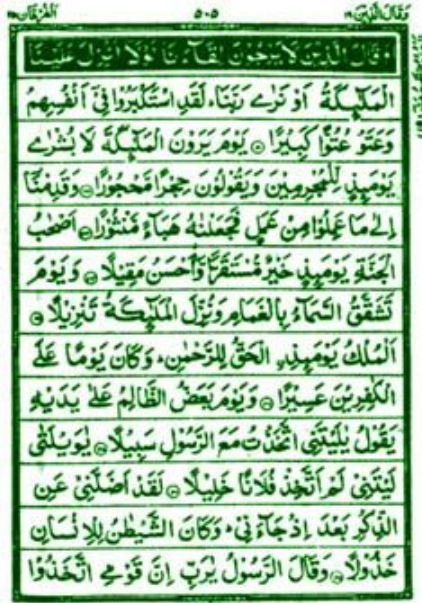 وَقَالَ الَّذِيْنَ ١٩ ٥٠٥ اَلْفُرْقَان ٢٥
وَقَالَ الَّذِيْنَ لَا يَرْجُوْنَ لِقَآءَنَا لَوْلَآ اُنْزِلَ عَلَيْنَا
الْمَلٰٓئِكَةُ اَوْ نَرٰى رَبَّنَا ؕ لَقَدِ اسْتَكْبَرُوْا فِيْٓ اَنْفُسِهِمْ
وَعَتَوْ عُتُوًّا كَبِيْرًا ۝ يَوْمَ يَرَوْنَ الْمَلٰٓئِكَةَ لَا بُشْرٰى
يَوْمَئِذٍ لِّلْمُجْرِمِيْنَ وَيَقُوْلُوْنَ حِجْرًا مَّحْجُوْرًا ۝ وَقَدِمْنَآ
اِلٰى مَا عَمِلُوْا مِنْ عَمَلٍ فَجَعَلْنٰهُ هَبَآءً مَّنْثُوْرًا ۝ اَصْحٰبُ
الْجَنَّةِ يَوْمَئِذٍ خَيْرٌ مُّسْتَقَرًّا وَّاَحْسَنُ مَقِيْلًا ۝ وَيَوْمَ
تَشَقَّقُ السَّمَآءُ بِالْغَمَامِ وَنُزِّلَ الْمَلٰٓئِكَةُ تَنْزِيْلًا ۝
اَلْمُلْكُ يَوْمَئِذِ ۨالْحَقُّ لِلرَّحْمٰنِ ؕ وَكَانَ يَوْمًا عَلَى
الْكٰفِرِيْنَ عَسِيْرًا ۝ وَيَوْمَ يَعَضُّ الظَّالِمُ عَلٰى يَدَيْهِ
يَقُوْلُ يٰلَيْتَنِي اتَّخَذْتُ مَعَ الرَّسُوْلِ سَبِيْلًا ۝ يٰوَيْلَتٰى
لَيْتَنِيْ لَمْ اَتَّخِذْ فُلَانًا خَلِيْلًا ۝ لَقَدْ اَضَلَّنِيْ عَنِ
الذِّكْرِ بَعْدَ اِذْ جَآءَنِيْ ؕ وَكَانَ الشَّيْطٰنُ لِلْاِنْسَانِ
خَذُوْلًا ۝ وَقَالَ الرَّسُوْلُ يٰرَبِّ اِنَّ قَوْمِي اتَّخَذُوْا